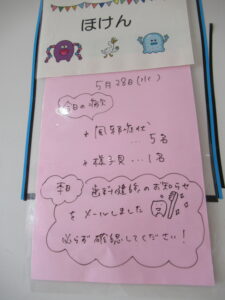 ほけん
5月28日(水)
今日の病欠
+ 風邪症状
… 5名
+ 様子見 … 1名
本日 歯科健診のお知らせ
をメールしました
必ず確認してください!